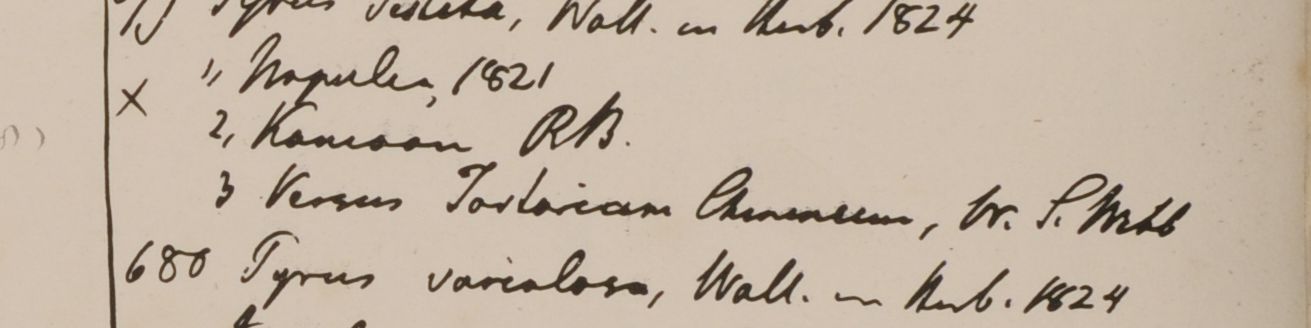 Pyrus vestita, Wall. in Herb. 1824
1, Napalia, 1821
× 2, Kamaon RB.
3 Versus Tartariam Chinensem, W. S. Webb
680 Pyrus variolosa, Wall. in Herb. 1824